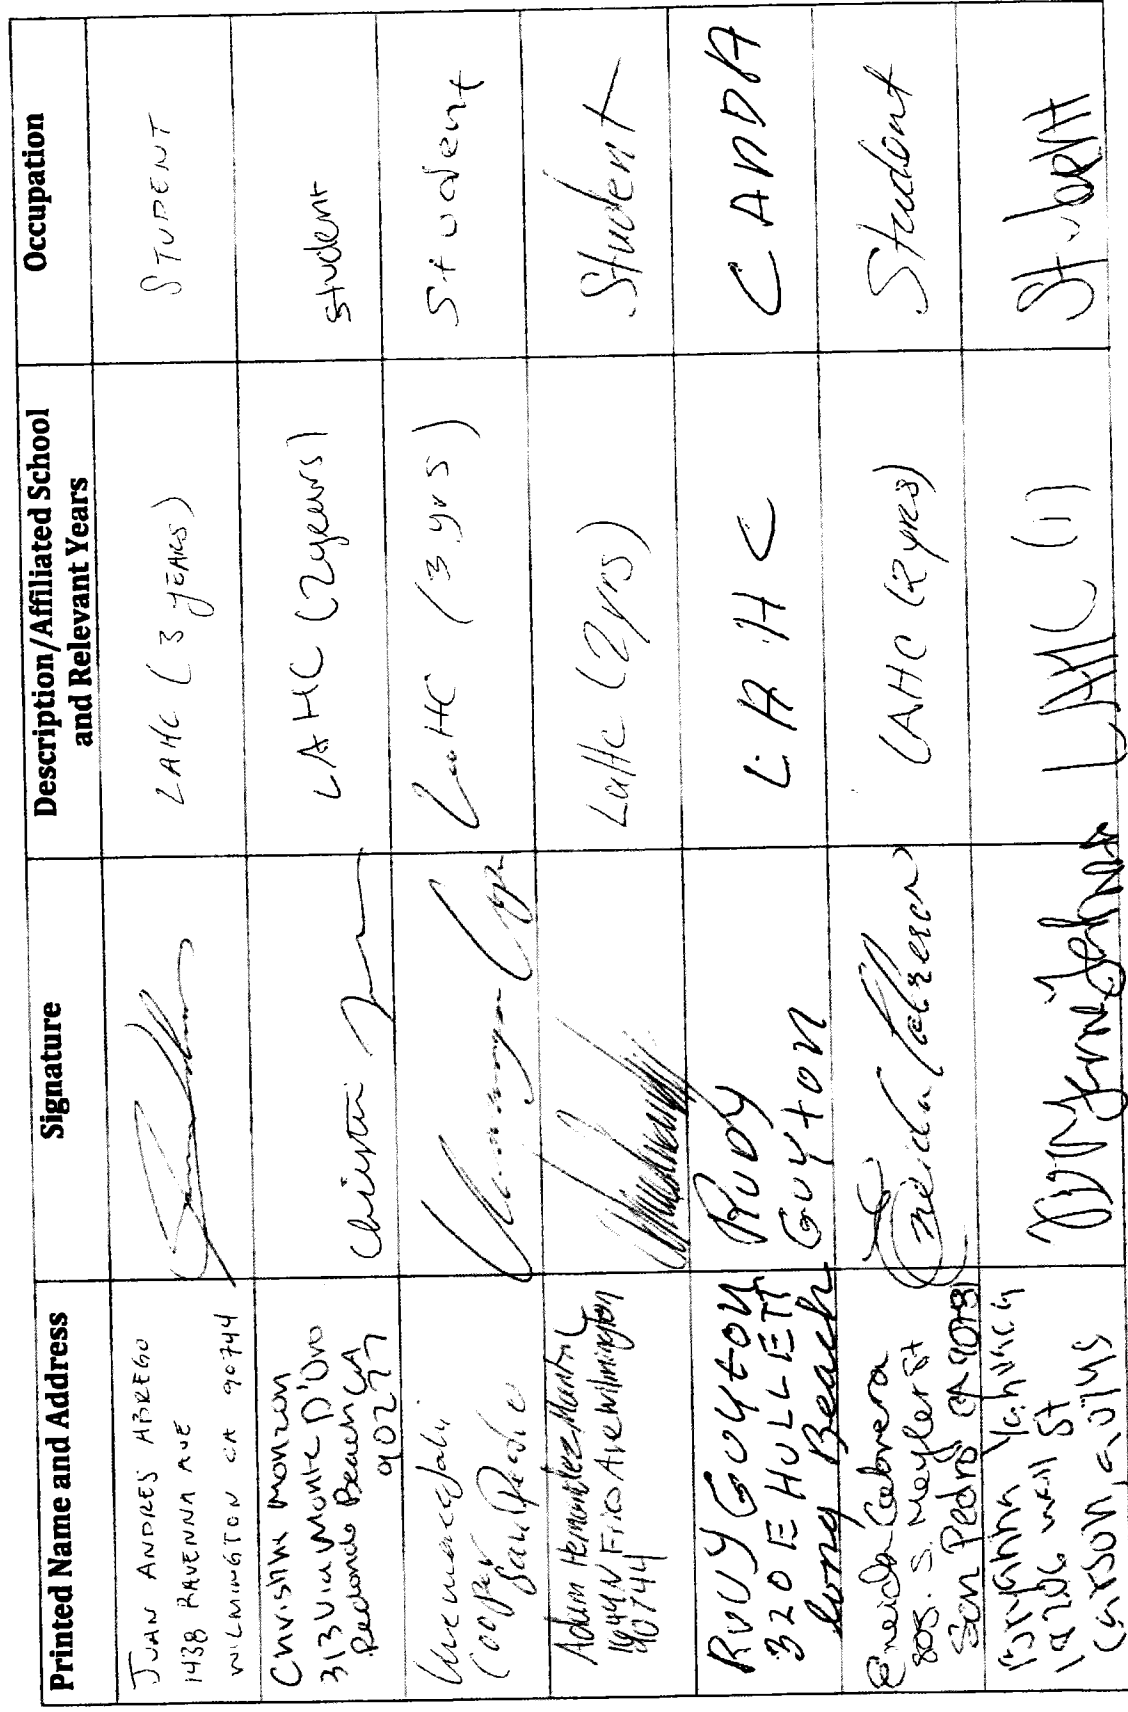 Printed Name and Address
Signature
Description/Affiliated School
and Relevant Years
Occupation
JUAN ANDRES ABREGO
1438 RAVENNA AVE
WILMINGTON CA 90744
LAHC (3 YEARS)
STUDENT
Christina Monzon
313 Via Monte D'Oro
Redondo Beach CA
90277
LAHC (2years)
student
Cooper
San Pedro
LaHC (3 yrs)
Student
Adam Hernandez
Wilmington
90744
LaHc (2yrs)
Student
RUDY GUYTON
320 E HULLETT
long Beach
RUDY
GUYTON
L A H C
C A N D A
Eneida Cabrera
805. S. Meyler St
San Pedro CA 90731
Eneida Cabrera
LAHC (2yrs)
Student
St
Carson,
LAHC (1)
Student